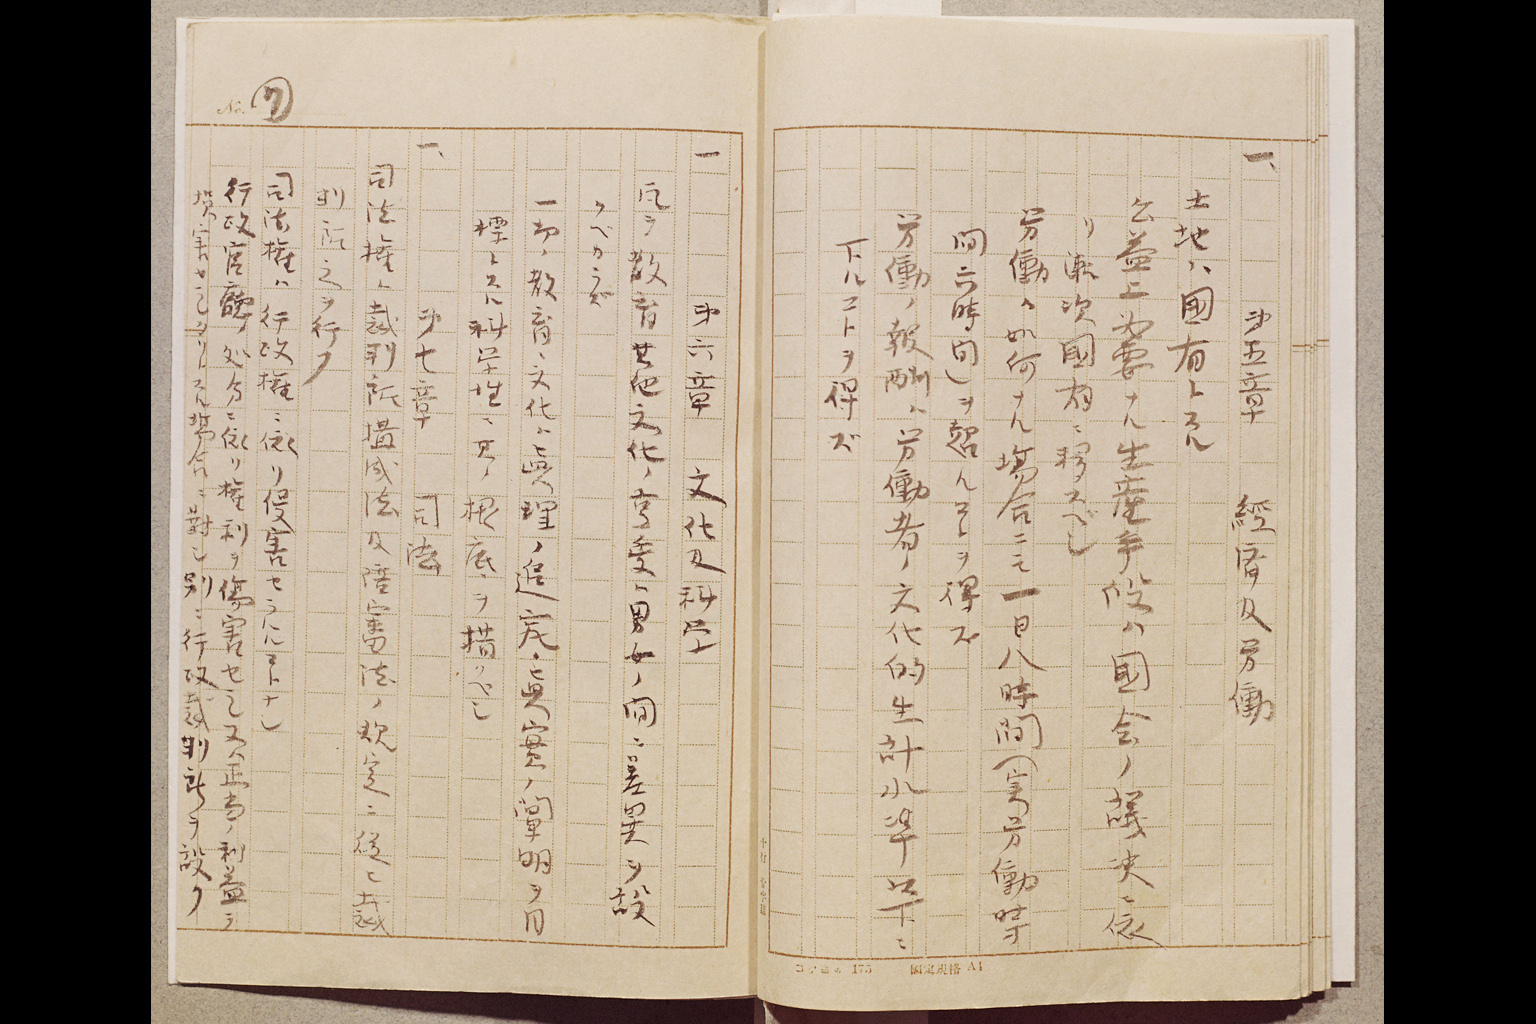 一、
第五章 經済及労働
土地ハ國有トスル
公益上必要ナル生産手段ハ國会ノ議決ニ依
リ漸次國有ニ移スベし
労働ハ如何ナル場合ニモ一日八時間(実労働時
間六時間)ヲ超ルコトヲ得ズ
労働ノ報酬ハ労働者ノ文化的生計水準以下ニ
下ルコトヲ得ズ
一
第六章 文化及科学
凡ヲ教育其他文化ノ享受ハ男女ノ間ニ差異ヲ設
クベカラズ
一切ノ教育、文化ハ眞理ノ追究、眞實ノ闡明ヲ目
標トスル科学性ニ其ノ根底ヲ措クベし
一、
第七章 司法
司法権ハ裁判所構成法及陪審法ノ規定ニ従ヒ裁
判所之ヲ行フ
司法権ハ行政権ニ依リ侵害セラルルコトナし
行政官廳ノ処分ニ依リ権利ヲ傷害セラレ又正当ノ利益ヲ
損害セラレタリトスル場合ニ對し別ニ行政裁判所ヲ設ク
No. 7
コクヨ 175 國定規格 A4